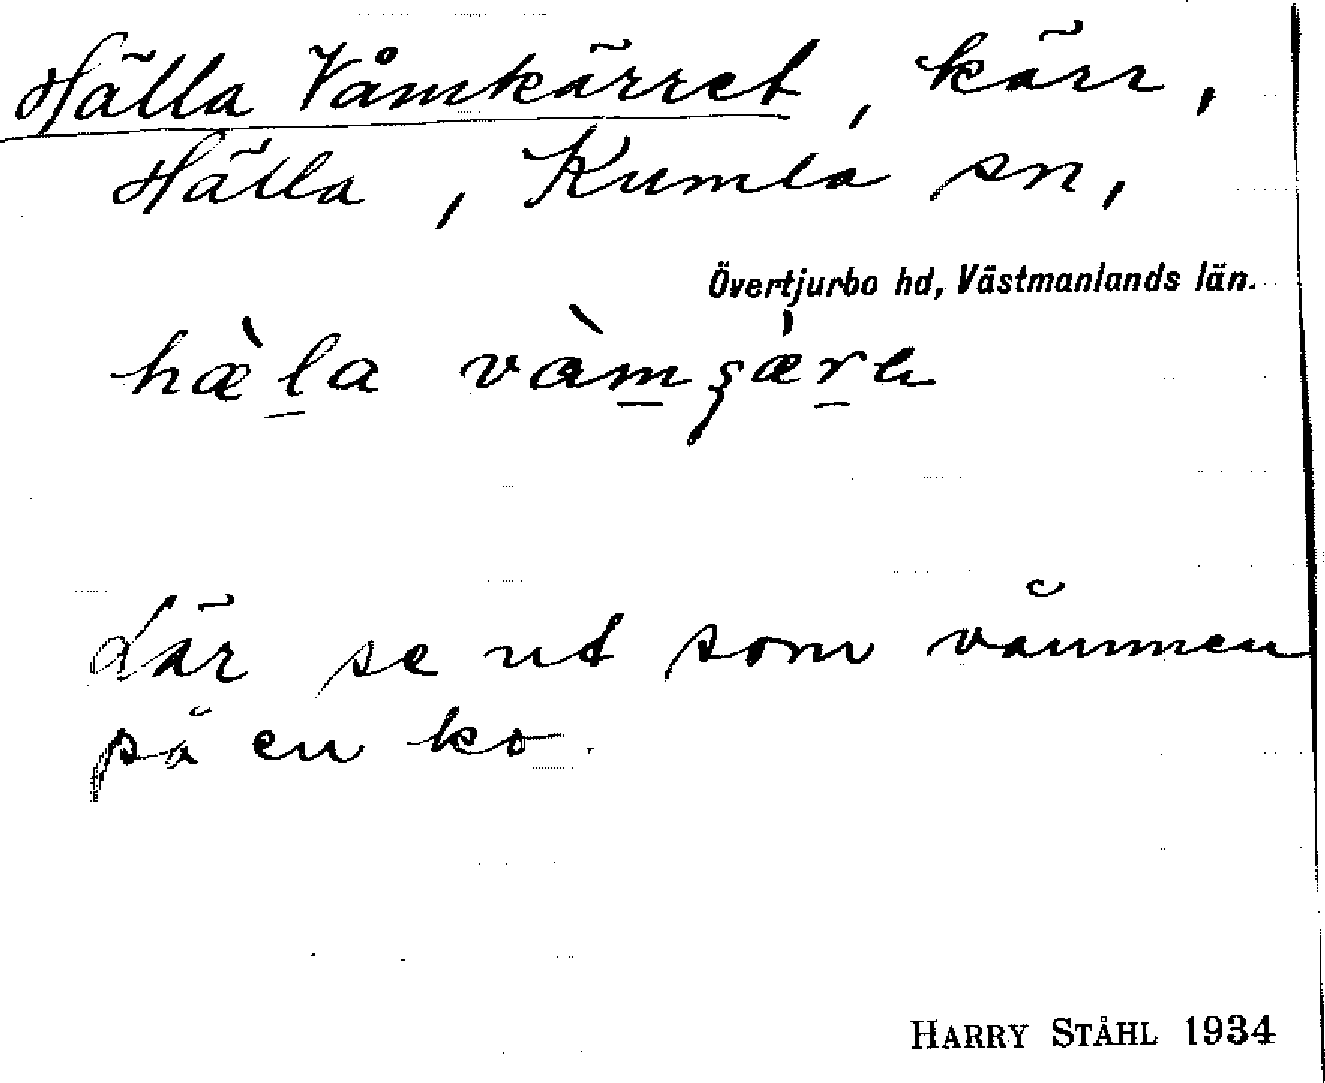 Hälla Våmkärret, kärr,
Hälla, Kumla sn,
Övertjurbo hd, Västmanlands län.
hæ̀l̲a vàm̲ʂær̲
Lär se ut som våmmen
på en ko.
HARRY STÅHL 1934